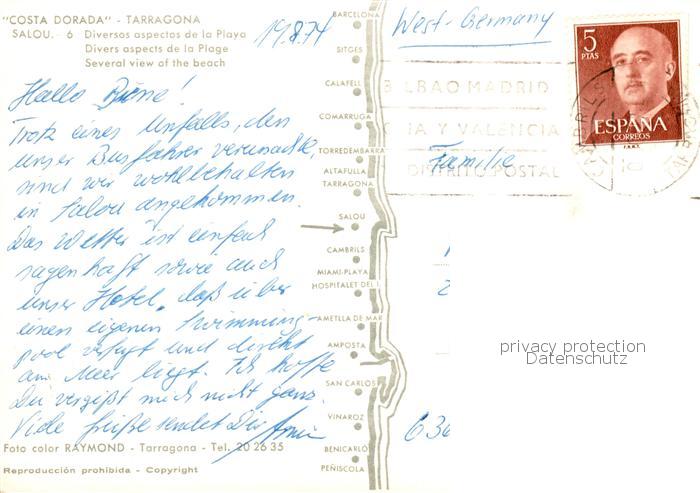 "COSTA DORADA" - TARRAGONA
SALOU.- 6 Diversos aspectos de la Playa
Divers aspects de la Plage
Several view of the beach
19.8.74
Hallo
Trotz eines Unfalls, den
unser Busfahrer verursachte,
sind wir wohlbehalten
in Salou angekommen.
Das Wetter ist einfach
sagenhaft sowie auch
unser Hotel, daß über
einen eigenen Swimming-
pool verfügt und direkt
am Meer liegt. Ich hoffe
Du vergißt mich nicht ganz.
Viele Grüße sendet Dir
Foto color RAYMOND - Tarragona - Tel. 20 26 35
Reproducción prohibida - Copyright
BARCELONA
SITGES
CALAFELL
COMARRUGA
TORREDEMBARRA
ALTAFULLA
TARRAGONA
SALOU
CAMBRILS
MIAMI-PLAYA
HOSPITALET DEL I.
AMETLLA DE MAR
AMPOSTA
SAN CARLOS
VINAROZ
BENICARLÓ
PEÑISCOLA
West-Germany
BILBAO MADRID
Y VALENCIA
DISTRITO POSTAL
Familie
5
PTAS
ESPAÑA
CORREOS
F.N.M.T.
privacy protection
Datenschutz